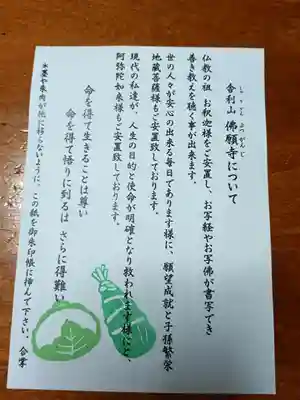 しゃりざん ぶつがんじ
舎利山 佛願寺について
仏教の祖 お釈迦様をご安置し、お写経やお写佛が書写でき
善き教えを聴く事が出来ます。
世の人々が安心の出来る毎日であります様に、願望成就と子孫繁栄
地蔵菩薩様もご安置致しております。
現代の私達が、人生の目的と使命が明確となり救われます様にと、
阿弥陀如来様もご安置致しております。
命を得て生きることは尊い
命を得て悟りに到るは さらに得難い
＊墨や朱肉が他に移らないように、この紙を御朱印帳に挿んで下さい。合掌